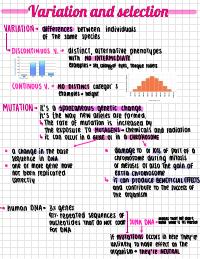 Variation and selection
VARIATION → differences between individuals
of the same species
DISCONTINUOUS V. → distinct, alternative phenotypes
with NO INTERMEDIATE
Examples → sex, tongue rollers
CONTINOUS V. → NO DISTINCT categor s
Examples → height
MUTATION → It's a spontaneous genetic change.
It's the way new alleles are formed.
The rate of mutation is increased by
the exposure to MUTAGENS → chemicals and radiation
It can occur in a GENE or in a CHROMOSOME
a change in the base
sequence in DNA
one or more gene have
not been replicated
correctly
damage to or loss of part of a
chromosome during mitosis
or meiosis or also the gain of
extra chromosome
it can produce BENEFICIAL EFFECTS
and contribute to the success of
the organism
Human DNA → 3x genes
97% repeated sequences of
nucleotides that do not code
for DNA
JUNK DNA
if MUTATIONS occur in here they're
unlikely to have effect on the
organism → they're NEUTRAL